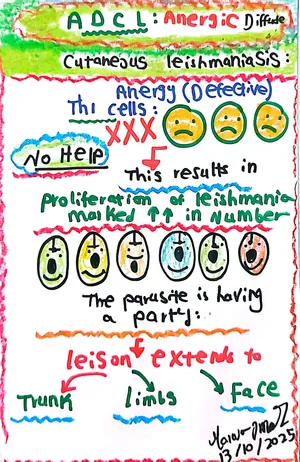 ADCL: Anergic Diffuse
Cutaneous leishmaniasis:
Anergy (Defective)
Th1 cells:
XXX
No Help
This results in
Proliferation of leishmania
marked ↑↑ in Number
The parasite is having
a party:
leison extends to
Trunk limbs Face
13/10/2025